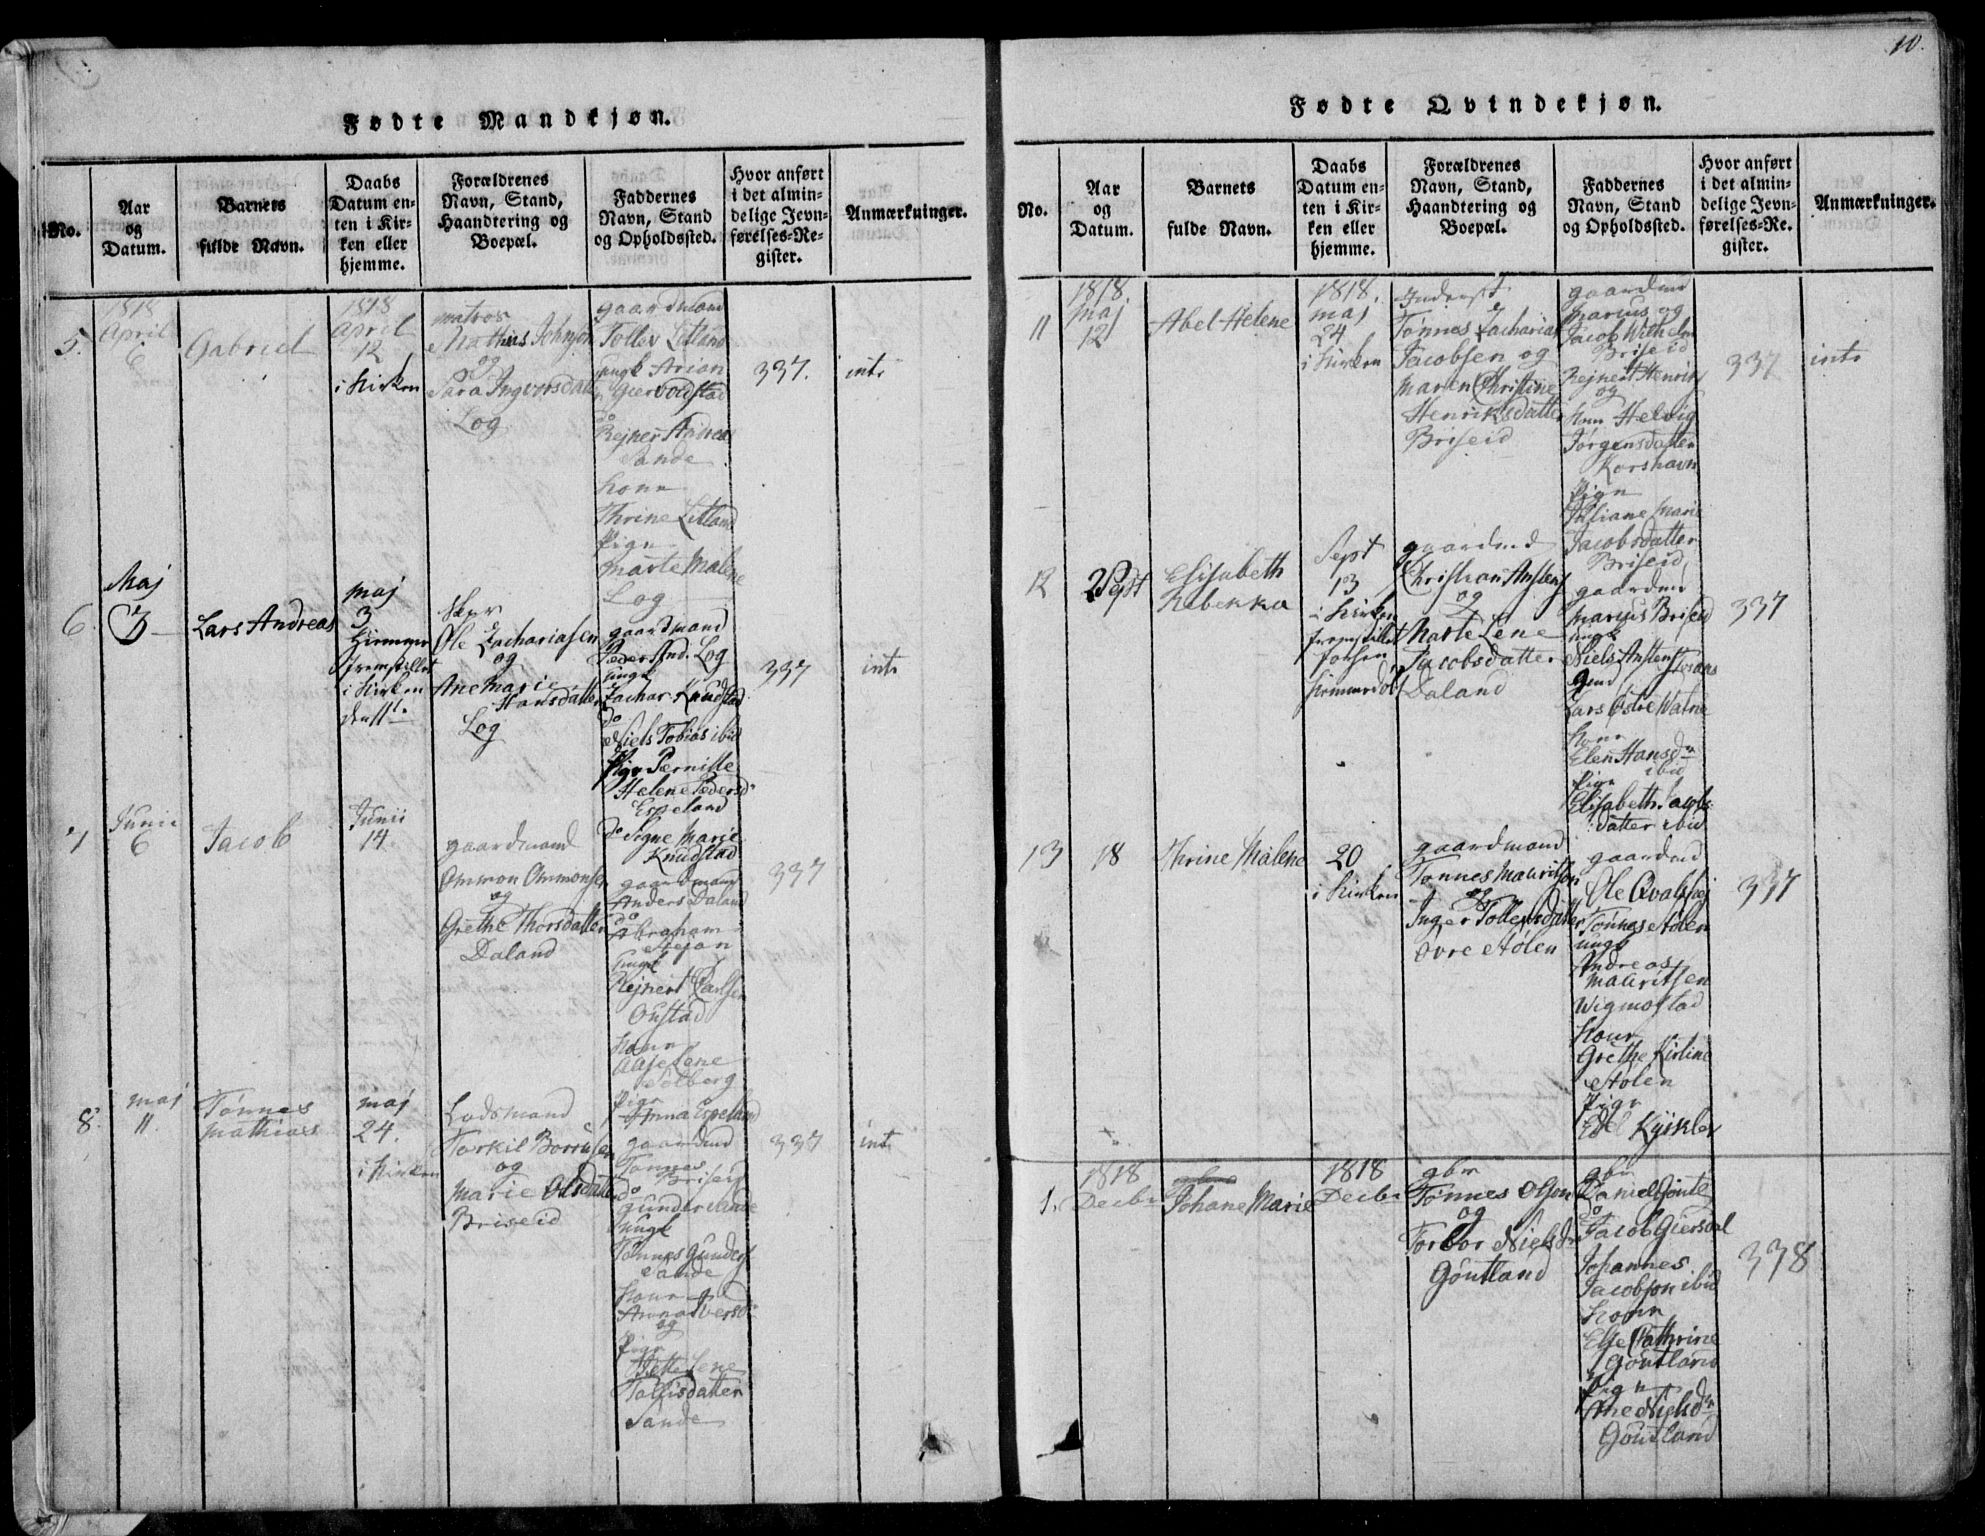 Fødte Mandkjøn.
No.
Aar
og
Datum.
Barnets
fulde Navn.
Daabs
Datum en-
ten i Kir-
ken eller
hjemme.
Forældrenes
Navn, Stand,
Haandtering og
Boepæl.
Faddernes
Navn, Stand
og Opholdssted.
Hvor anført
i det almin-
delige Jevn-
førelses-Re-
gister.
Anmærkninger.
5.
1818
April
6
Gabriel
1818
April
12
i Kirken
matros
Mathias Johnson
og
Sara Ingvorsdatter
Log
gaardmand
Tollev Litland
ungk Arian
Giervoldstad
do
Rejner Andreas
Sande
kone
Thrine Litland
Pige
Marte Malene
Log
337.
int.
6.
Maj
3
Lars Andreas
maj
3
Hjemme
fremstillet
i Kirken
Ole Zachariasen
og
Ane Marie
Hansdatter
Log
gaardmand
Peder And. Log
ungk
Zachar Knudstad
do
Niels Tobias ibid
Pige Pernille
Helene Pedersd.
Espeland
do Signe Marie
Knudstad
337
int.
7
Junii
6
Jacob
Junii
14.
gaardmand
Ommon Ommonsen
og
Grethe Thorsdatter
Daland
gaardmand
Anders Daland
do
Abraham
Stejan
ungk
Rejnert
Oustad
kone
Aase Lene
Solberg
Pige
Anna Espeland
337
8.
maj
11.
Tønnes
mathias
maj
24.
i Kirken
Lodsmand
Torkil Borrusen
og
Marie Olsdatter
Briseid
gaardmd
Tønnes
Briseid
do
Gunder Sande
ungk
Tønnes Gunders.
Sande
kone
Anna Iversd.
og
Pige
Mette Lene
Tollisdatter
Sande
337
int.
10.
Fødte Qvindekjøn.
No.
Aar
og
Datum.
Barnets
fulde Navn.
Daabs
Datum en-
ten i Kir-
ken eller
hjemme.
Forældrenes
Navn, Stand,
Haandtering og
Boepæl.
Faddernes
Navn, Stand
og Opholdssted.
Hvor anført
i det almin-
delige Jevn-
førelses-Re-
gister.
Anmærkninger.
11
1818.
Maj
12
Abel Helene
1818.
maj
24
i Kirken
Inderst
Tønnes Zacharias
Jacobsen og
Maren Christine
Henriksdatter
Briseid
gaardmd
Marcus og
Jacob Wilhelm
Briseid
Rejnert Henrik
og
kone Helvig
Jørgensdatter
Korshavn
Pige
Juliane Marie
Jacobsdatter
Briseid
337
int.
12
2 Sept
Elisabeth
Rebekka
Sept
13
i Kirken
fremstillet
gaardmd
Christian Anstens.
og
Marte Lene
Jacobsdatter
Daland
gaardmd
Marcus Briseid
ungk
Niels Anstens
gmd
Lars Østre Watne
kone
Elen Hansdr
ibid
Pige
Elisabeth Jacobs
datter ibid
337
13
18
Thrine Malene
20
i Kirken
gaardmand
Tønnes Mauritson
og
Inger Tollevsdatter
Øvre Aølen
gaardmd
Ole Qvalshej
Tønnes Aølen
ungk
Andreas
Mauritsen
Wigmostad
kone
Grethe Kirstine
Aølen
Pige
Edel Kyikler
337
1.
1818
Decbr
Johane Marie
1818
Decbr
gbr
Tønnes Olson
og
Torbor Nielsdr
Gøutland
gbr
Daniel
do
Jacob Giersdal
Johannes
Jacobson ibid
kone
Else Cathrine
Gøutland
Pige
Ane Nielsdr
Gøutland
338